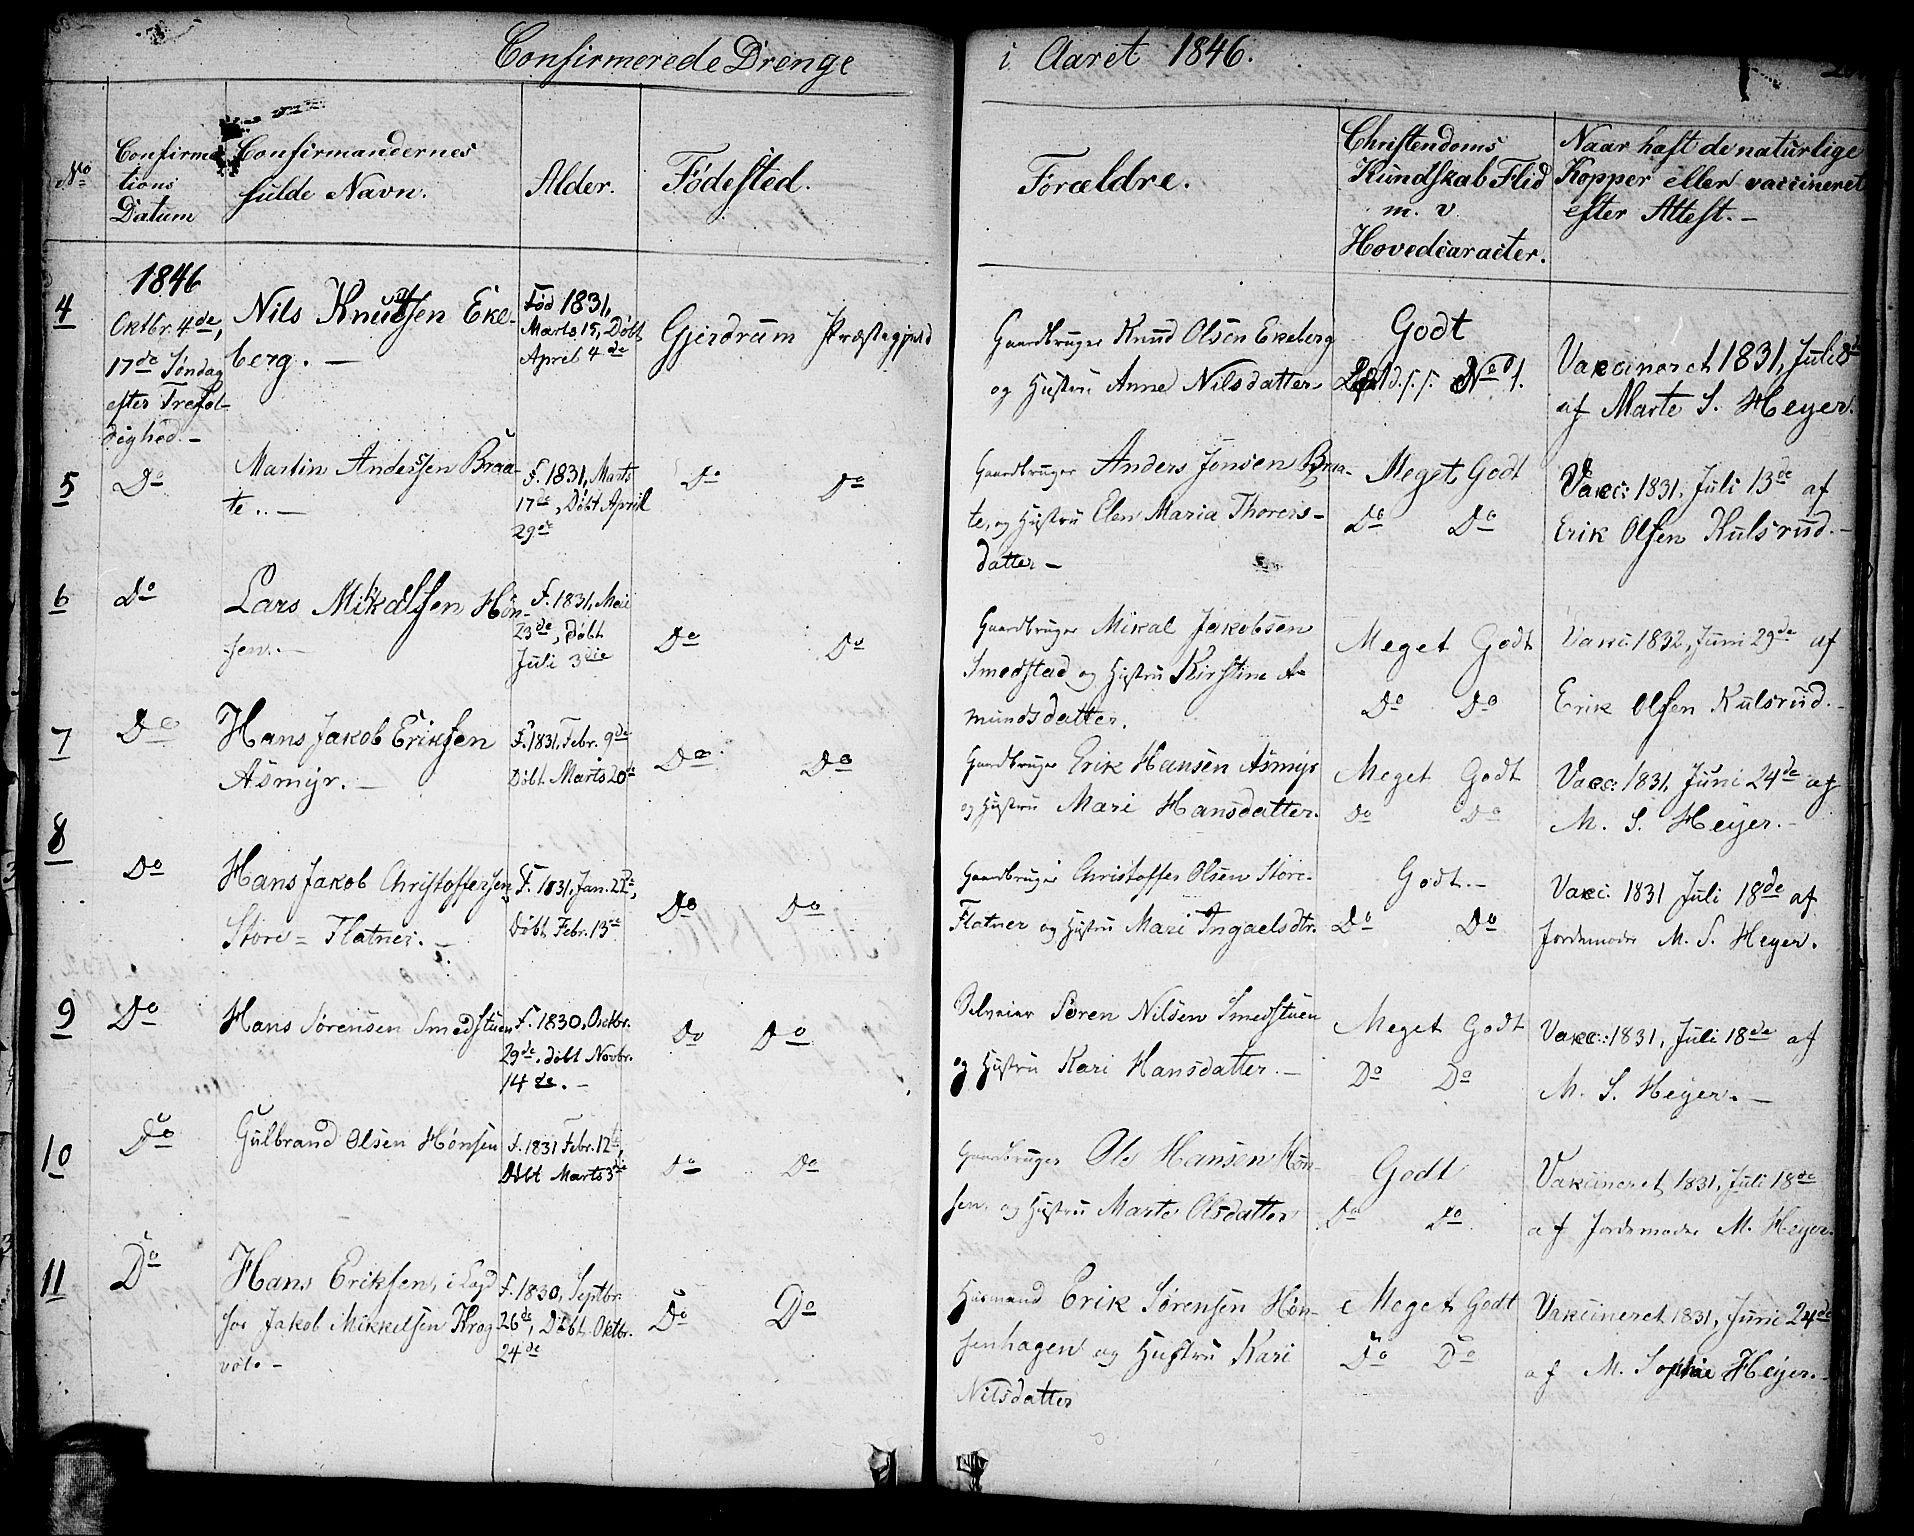 Confirmerede Drenge i Aaret 1846.
No
Confirmations Datum
Confirmandernes fulde Navn.
Alder.
Fødested.
Forældre.
Christendoms Kundskab Flid m. v. Hovedcaracter.
Naar haft de naturlige Kopper eller vaccineret efter Attest. -
4
1846
Oktbr. 4de,
17de Søndag
efter Trefol-
dighed. -
Nils Knudtsen Eke-
berg. -
Fød 1831,
Marts 15, Døbt
April 4de
Gjerdrum Præstegjeld
Gaardbruger Knud Olsen Ekeberg
og Hustru Anne Nilsdatter
Godt
No 1.
Vaccineret 1831, Juli 8de
af Marte S. Heyer.
5
Do
Martin Anderssen Braa-
te. -
F. 1831, Marts
17de, Døbt April
29de
Do Do
Gaardbruger Anders Jensen Braa-
te, og Hustru Elen Maria Thorers-
datter -
Meget Godt
Do Do
Vacc: 1831, Juli 13de af
Erik Olsen Kulsrud. -
6
Do
Lars Mikalssen Høn-
sen. -
F. 1831, Mai
23de, døbt
Juli 3die
Do Do
Gaardbruger Mikal Jakobsen
Smedstad og Hustru Kirstine A-
mundsdatter.
Meget Godt
Do Do
Vacc: 1832, Juni 29de af
Erik Olsen Kulsrud. -
7
Do
Hans Jakob Eriksen
Asmyr. -
F. 1831, Febr. 9de
Døbt Marts 20de
Do Do
Gaardbruger Erik Hansen Asmyr
og Hustru Mari Hansdatter.
Meget Godt
Do Do
Vacc: 1831, Juni 24de af
M. S. Heyer. -
8
Do
Hans Jakob Christoffersen
Store = Flatner. -
F. 1831, Jan. 22de,
Døbt Febr. 13de
Do Do
Gaardbruger Christoffer Olsen Store-
Flatner og Hustru Mari Ingaelsdtr.
Godt. -
Do Do
Vacc: 1831 Juli 18de af
Jordemoder M. S. Heyer.
9
Do
Hans Sørensen Smedstuen
F. 1830, Octbr.
29de, døbt Novbr.
14de. -
Do Do
Selveier Søren Nilsen Smedstuen
og Hustru Kari Hansdatter. -
Meget Godt
Do Do
Vacc: 1831, Juli 18de af
M. S. Heyer. -
10
Do
Gulbrand Olsen Hønsen
F. 1831 Febr. 12te,
Døbt Marts 3die
Do Do
Gaardbruger Ole Hansen Høn-
sen, og Hustru Marte Olsdatter
Godt
Do Do
Vakcineret 1831, Juli 18de
af Jordemoder M. Heyer.
11
Do
Hans Eriksen, i Lægd
hos Jakob Mikkelsen Krog-
vole -
F. 1830, Septbr.
26de, Døbt Oktbr.
24de
Do Do
Husmand Erik Sørensen Høn-
senhagen og Hustru Kari
Nilsdatter
Meget Godt
Do Do
Vakcineret 1831, Juni 24de
af M. Sophie Heyer. -